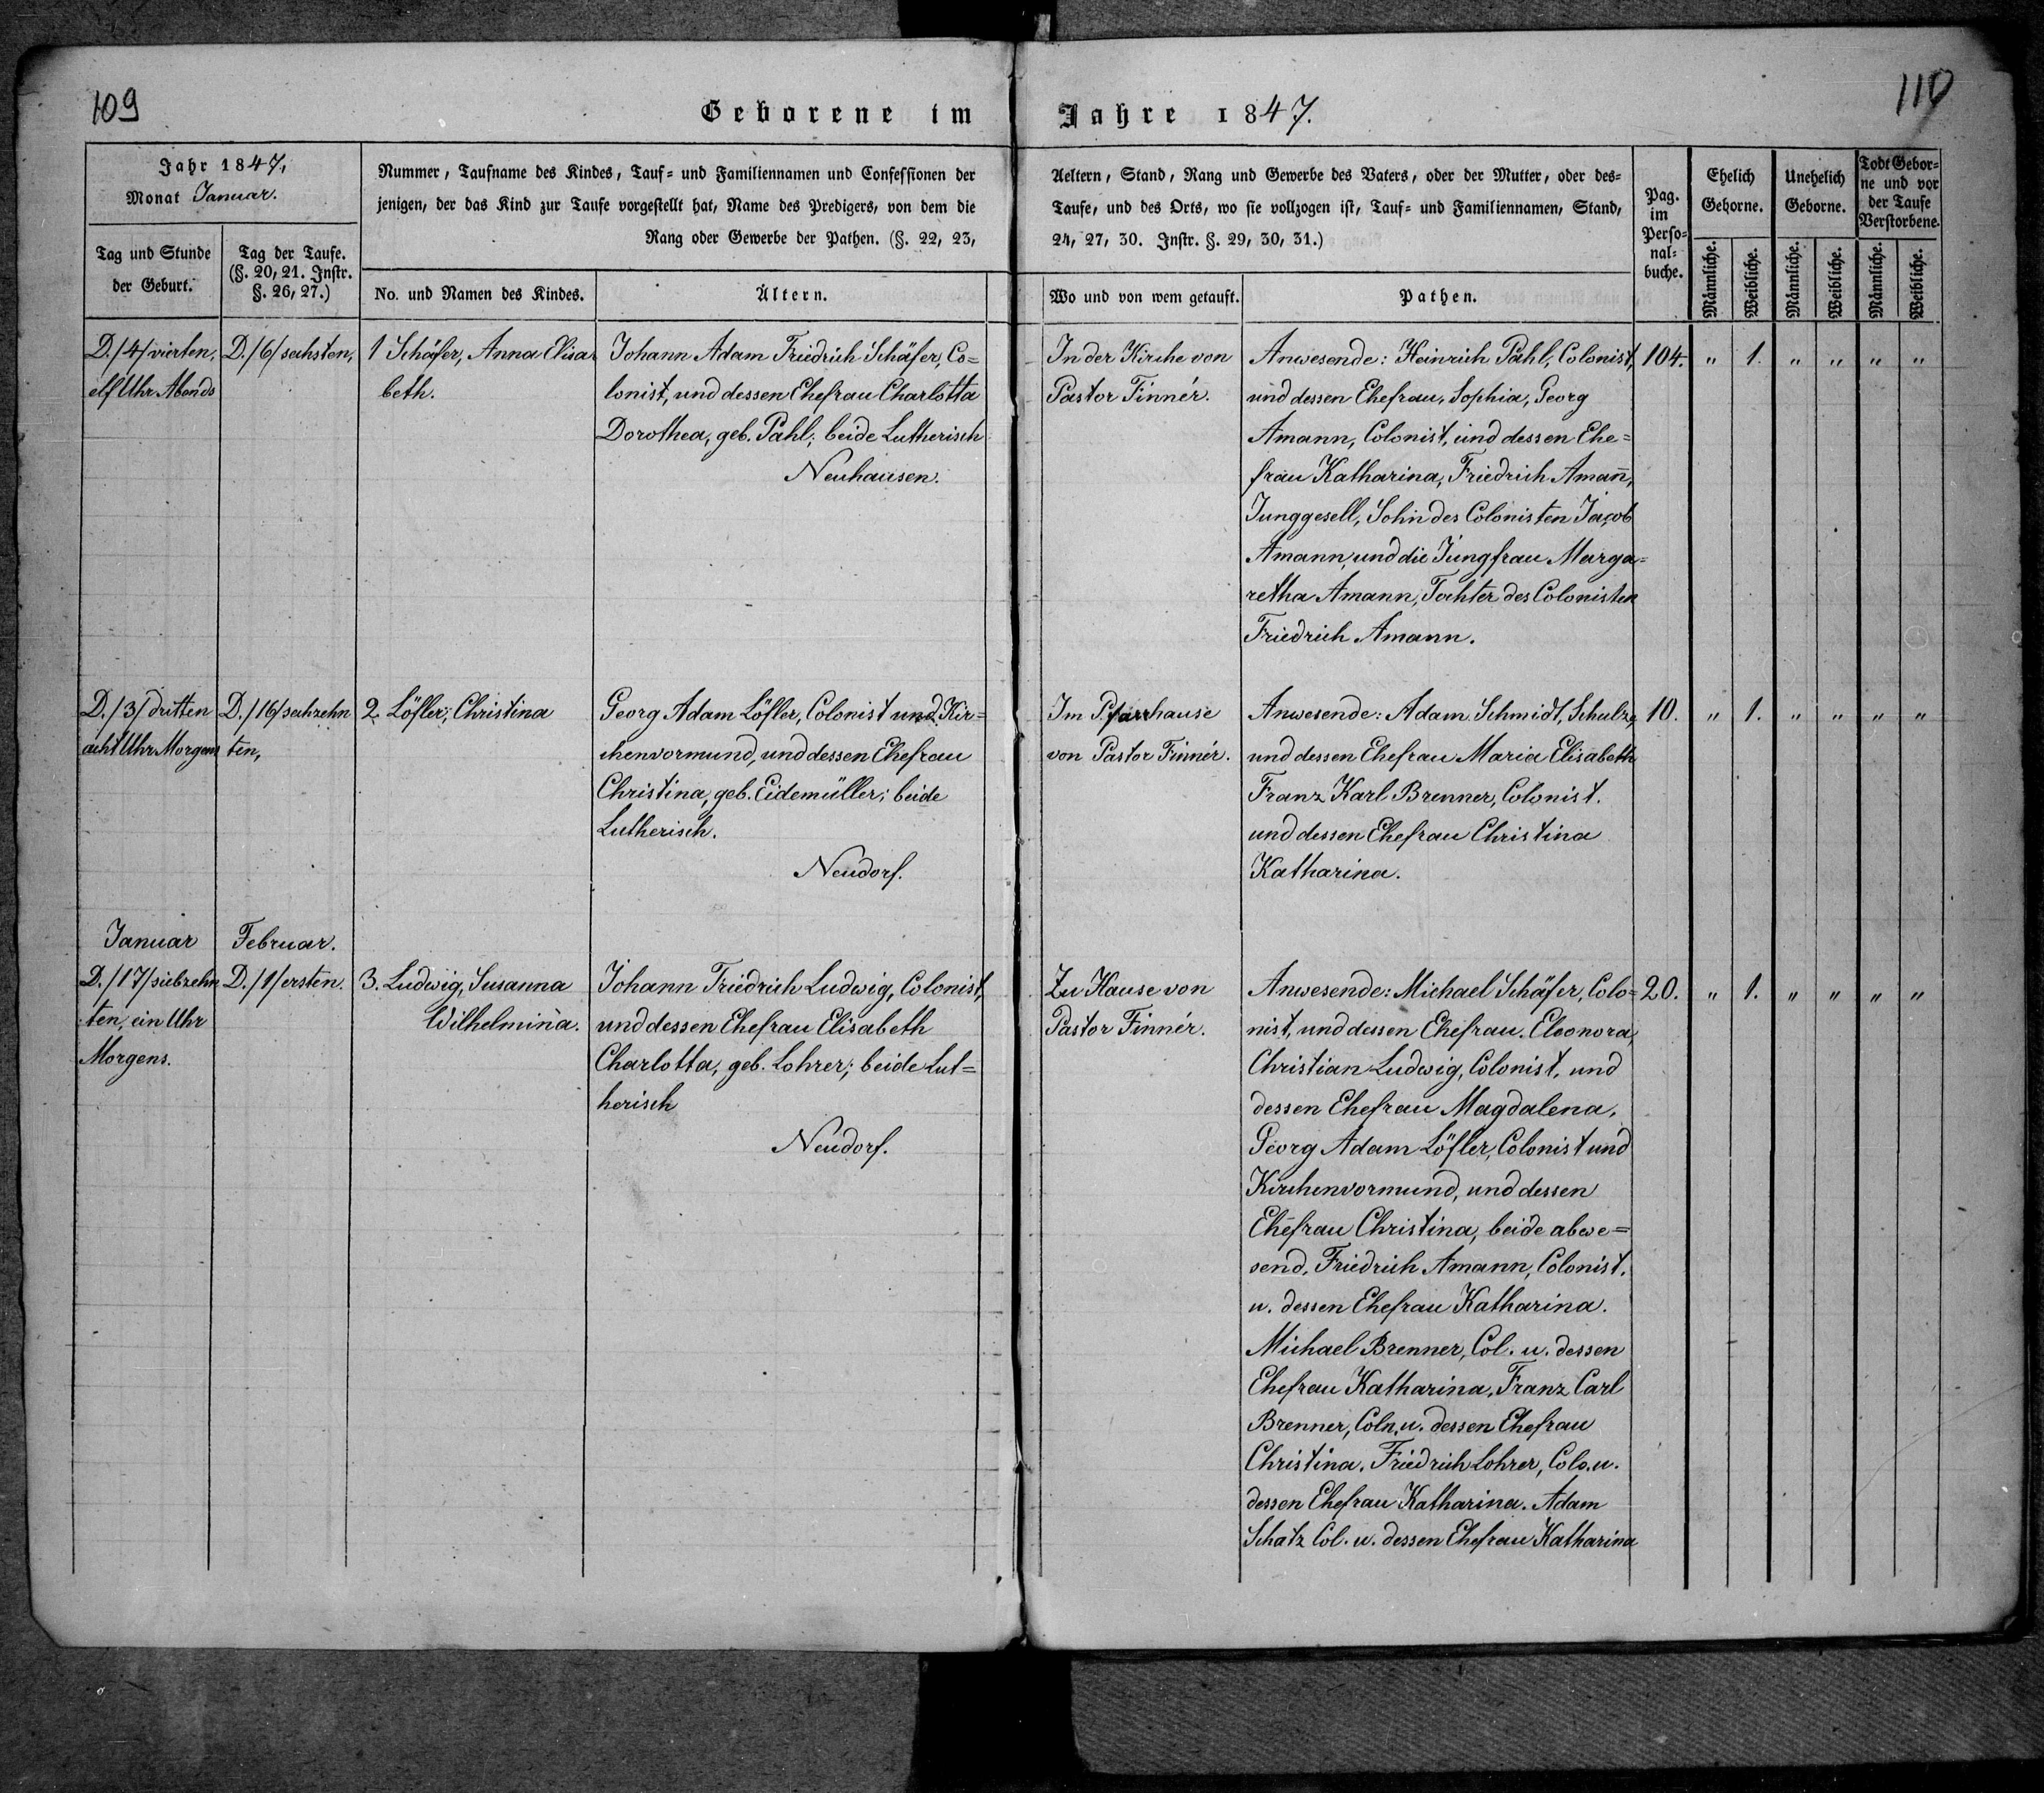 109
Geborene im Jahre 1847.
110
Jahr 1847,
Monat Januar.
Tag und Stunde der Geburt.
Tag der Taufe. (§. 20, 21. Instr. §. 26, 27.)
Nummer, Taufname des Kindes, Tauf- und Familiennamen und Confessionen der
jenigen, der das Kind zur Taufe vorgestellt hat, Name des Predigers, von dem die
Rang oder Gewerbe der Pathen. (§. 22, 23,
No. und Namen des Kindes.
Ältern.
Aeltern, Stand, Rang und Gewerbe des Vaters, oder der Mutter, oder des-
Taufe, und des Orts, wo sie vollzogen ist, Tauf- und Familiennamen, Stand,
24, 27, 30. Instr. §. 29, 30, 31.)
Wo und von wem getauft.
Pathen.
Pag. im Perso-nal-buche.
Ehelich Geborne.
Unehelich Geborne.
Todt Gebor-ne und vor der Taufe Verstorbene.
Männliche.
Weibliche.
Männliche.
Weibliche.
Männliche.
Weibliche.
D./4/vierten,
elf Uhr Abends
D./6/sechsten,
1 Schäfer, Anna Elisa-
beth.
Johann Adam Friedrich Schäfer, Co=
lonist, und dessen Ehefrau Charlotta
Dorothea, geb. Pahl; beide Lutherisch
Neuhausen.
In der Kirche von
Pastor Finnér.
Anwesende: Heinrich Pahl, Colonist,
und dessen Ehefrau, Sophia, Georg
Amann, Colonist, und dessen Ehe=
frau Katharina, Friedrich Aman̄,
Junggesell, Sohn des Colonisten Jacob
Amann, und die Jungfrau Marga=
retha Amann, Tochter des Colonisten
Friedrich Amann.
104. " 1. " " " "
D./3/dritten
acht Uhr Morgens
D./16/sechzehn
ten,
2. Löfler, Christina
Georg Adam Löfler, Colonist und Kir=
chenvormund, und dessen Ehefrau
Christina, geb. Eidemüller; beide
Lutherisch.
Neudorf.
Im Pfarrhause
von Pastor Finnér.
Anwesende: Adam Schmidt, Schulze,
und dessen Ehefrau Maria Elisabeth
Franz Karl Brenner, Colonist.
und dessen Ehefrau Christina
Katharina.
10. " 1. " " " "
Januar
D./17/siebzehn
ten, ein Uhr
Morgens.
Februar.
D./1/ersten.
3. Ludwig, Susanna
Wilhelmina.
Johann Friedrich Ludwig, Colonist,
und dessen Ehefrau Elisabeth
Charlotta, geb. Lohrer; beide Lut=
herisch
Neudorf.
Zu Hause von
Pastor Finnér.
Anwesende: Michael Schäfer, Colo=
nist, und dessen Ehefrau Eleonora,
Christian Ludwig, Colonist, und
dessen Ehefrau Magdalena,
Georg Adam Löfler, Colonist und
Kirchenvormund, und dessen
Ehefrau Christina, beide abwe=
send, Friedrich Amann, Colonist,
u. dessen Ehefrau Katharina.
Michael Brenner, Col. u. dessen
Ehefrau Katharina, Franz Carl
Brenner, Coln. u. dessen Ehefrau
Christina. Friedrich Lohrer, Colo. u.
dessen Ehefrau Katharina. Adam
Schatz Col. u. dessen Ehefrau Katharina
20. " 1. " " " "